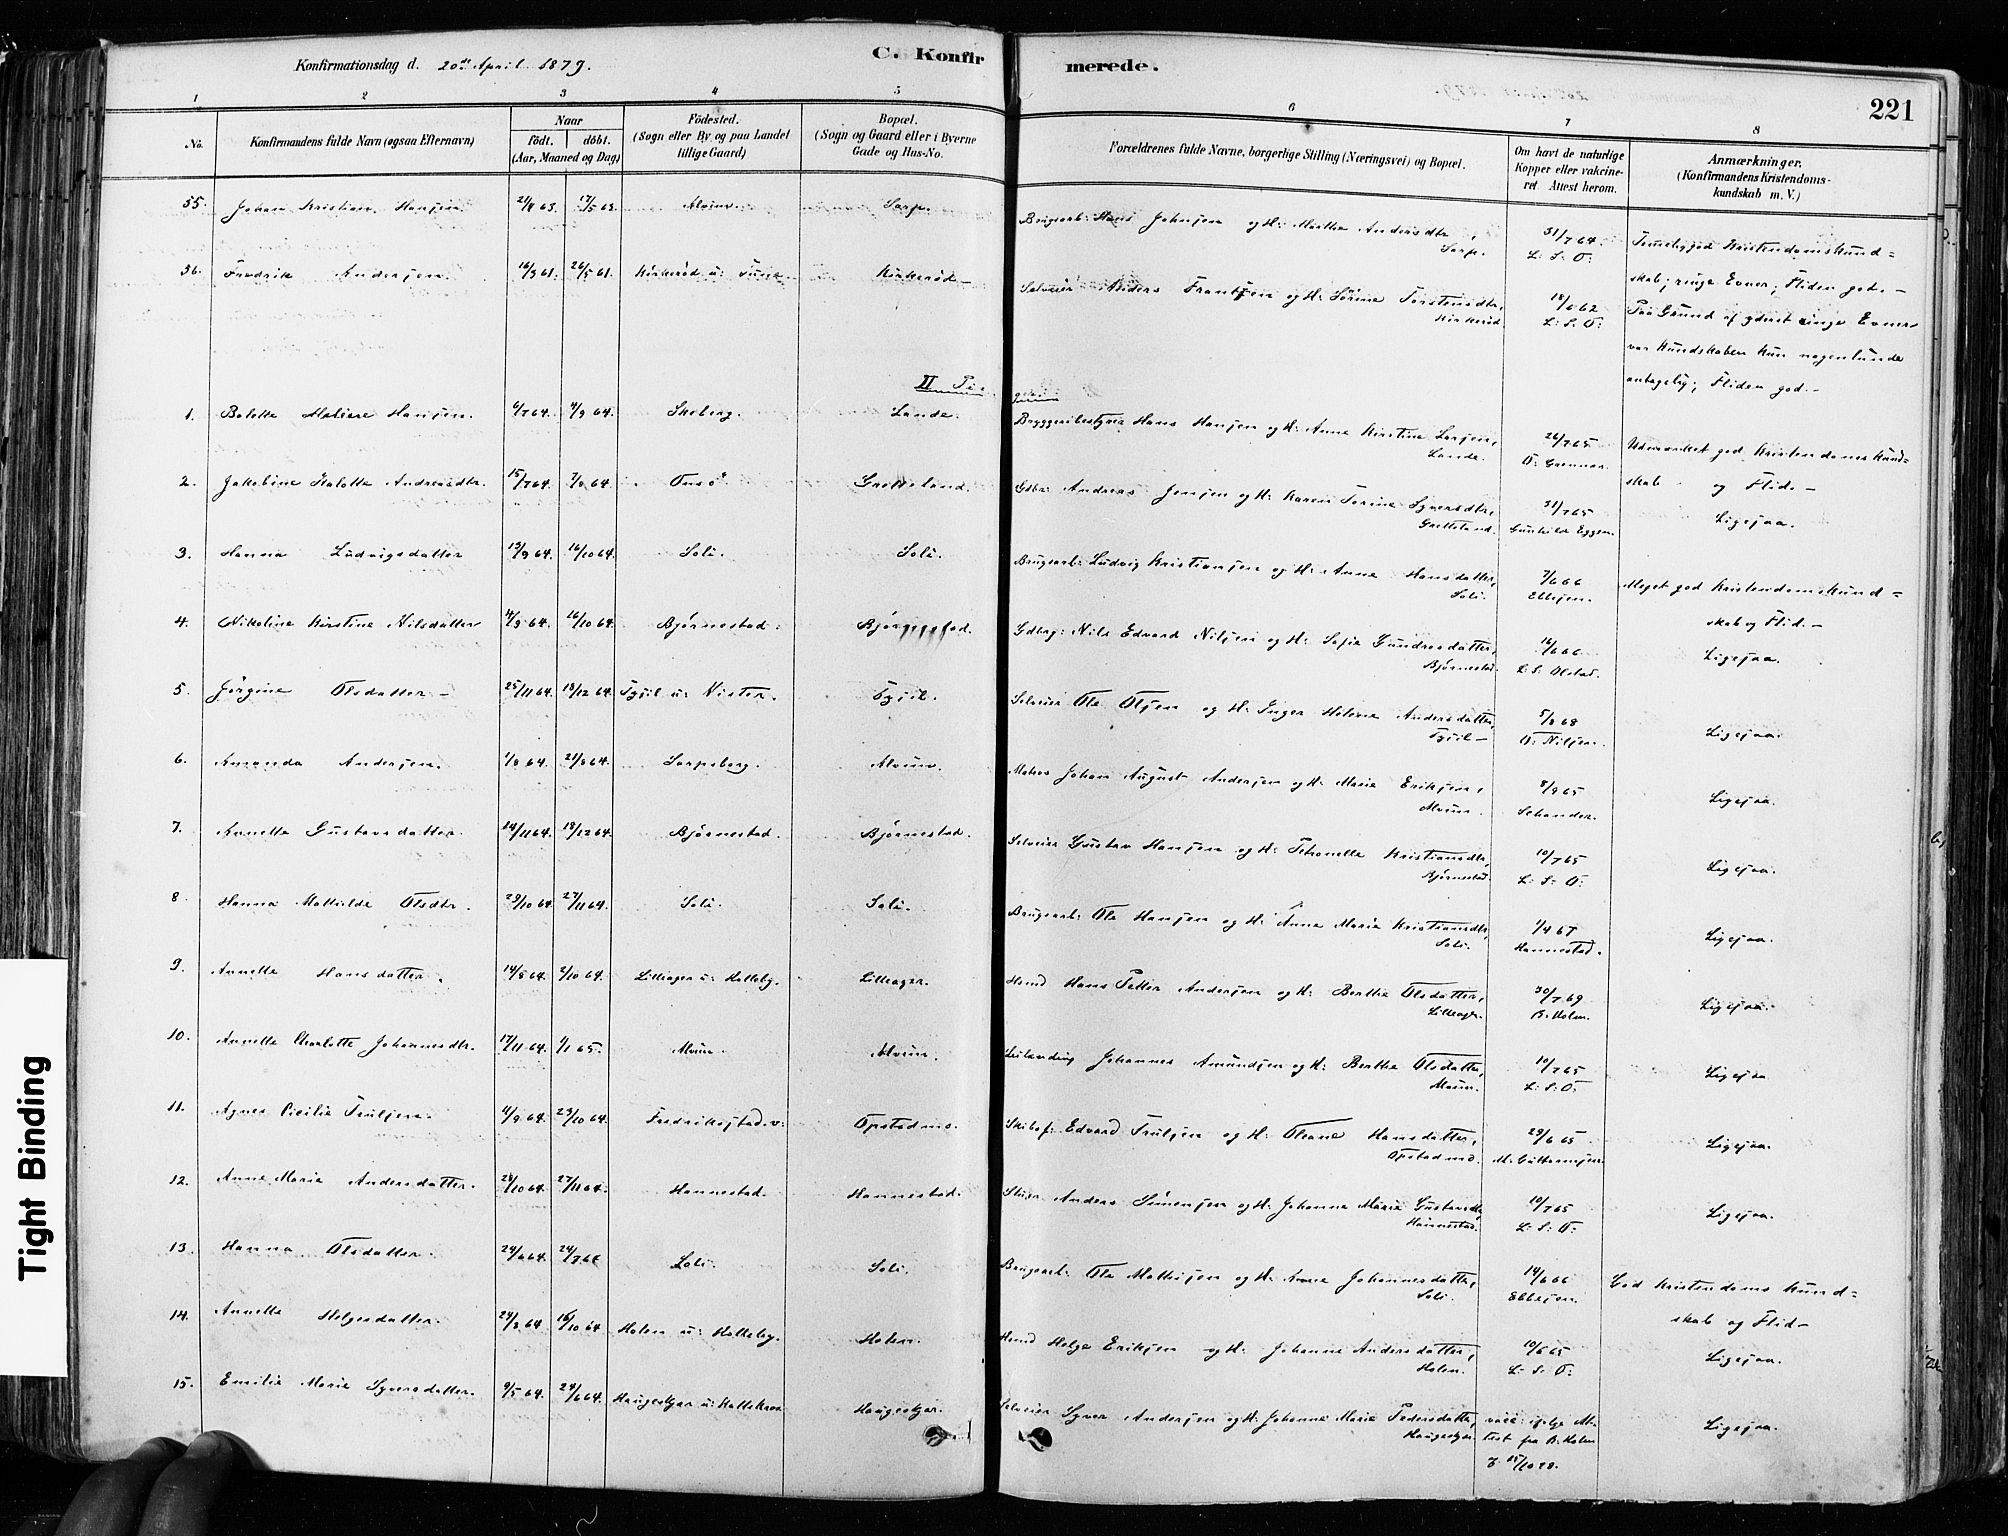 Konfirmationsdag d. 20de April 1879.
C. Konfirmerede.
221
1 2 3 4 5 6 7 8
No.
Konfirmandens fulde Navn (ogsaa Efternavn)
Naar
födt. döbt.
(Aar, Maaned og Dag)
Födested.
(Sogn eller By og paa Landet
tillige Gaard)
Bopæl.
(Sogn og Gaard eller i Byerne
Gade og Hus-No.
Forældrenes fulde Navne, borgerlige Stilling (Næringsvei) og Bopæl.
Om havt de naturlige
Kopper eller vakcine-
ret. Attest herom.
Anmærkninger,
(Konfirmandens Kristendoms-
kundskab m. V.)
35. Johan Kristian Hansen 21/4 63. 17/5 63. Alvim. Sarp. Brugsarb: Hans Johnsen og H: Marthe Andersdtr, Sarp. 31/7 64. L: S: O: Temmelig god Kristendomskund=
skab; ringe Evner; Fliden god. —
36. Fredrik Andersen 16/3 61. 26/5 61. Kirkerød u: Tune Kirkerød — Selveier Anders Frantzen og H: Sørine Torstensdtr, Kirkerød 18/6 62 L: S: O: Paa Grund af yderst ringe Evner
var Kundskaben kun nogenlunde
antagelig; Fliden god. —
II Piger
1. Bolette Hansen. 6/7 64. 4/9 64. Skeberg. Lande. Bryggeribestyrer Hans Hansen og H: Anne Kirstine Larsen, Lande. 26/7 65 Udmærket god Kristendomskund=
skab og Flid. —
2. Jakobine Kalotte Andreasdtr. 15/7 64. 7/8 64. Tusø Grotteland. Gdbr: Andreas Jensen og H: Karen Torine Syversdtr, Grotteland. 31/7 65 Gunhilde Eggen. Ligesaa.
3. Hanna Ludvigsdatter 13/9 64. 16/10 64. Soli. Soli. Brugsarb: Ludvig Kristiansen og H: Anne Hansdatter, Soli. 7/6 66 Ebbesen. Meget god Kristendomskund=
skab og Flid. —
4. Nikoline Kirstine Nilsdatter 4/9 64. 16/10 64. Bjørnestad. Bjørnestad. Gdbrg: Nils Edvard Nilsen og H: Sofie Gundresdatter, Bjørnestad. 16/6 66 L: S: Olstad. Ligesaa.
5. Jörgine Olsdatter — 25/11 64. 18/12 64. Selveier Ole Olsen og H: Inger Helene Andersdatter, 5/8 68 O: Nilsen. Ligesaa.
6. Amanda Andersen. 1/8 64. 21/8 64. Sarpsborg. Alvim. Matros Johan August Andersen og H: Marie Eriksen, Alvim. 8/9 65 Schander. Ligesaa.
7. Annette Gustavsdatter. 14/11 64. 18/12 64. Bjørnestad. Bjørnestad. Selveier Gustav Hansen og H: Petronelle Kristiansdtr, Bjørnestad. 10/7 65 L: S: O: Ligesaa.
8. Hanna Mathilde Olsdtr. 29/10 64. 27/11 64. Soli. Soli. Brugsarb: Ole Hansen og H: Anne Marie Kristiansdtr, Soli. 1/4 67 Hannestad. Ligesaa.
9. Annette Hansdatter. 14/8 64. 2/10 64. Lilleager u: Hatteby. Lilleager. Hmd Hans Petter Andersen og H: Berthe Olsdatter, Lilleager. 30/7 69 B. Holm. Ligesaa.
10. Annette Charlotte Johannesdtr. 17/11 64. 1/1 65. Alvim. Alvim. Leilænding Johannes Amundsen og H: Berthe Olsdatter, Alvim. 10/7 65 L: S: O: Ligesaa
11. Agnes Cecilie Trulsen. 4/9 64. 23/10 64. Fredrikstad. Opstadmo. Skibsf: Edvard Trulsen og H: Oleane Hansdatter, Opstadmo. 29/6 65 M. Guttormsen. Ligesaa.
12. Anne Marie Andersdatter. 28/10 64. 27/11 64. Hannestad. Hannestad. Anders Simensen og H: Johanne Marie Gustavsdtr, Hannestad. 10/7 65 L: S: O: Ligesaa.
13. Hanna Olsdatter. 24/6 64. 24/7 64 Soli. Soli. Brugsarb: Ole Mathisen og H: Anne Johannesdatter, Soli. 14/6 66 Ebbesen. God Kristendomskund=
skab og Flid —
14. Annette Helgesdatter. 24/8 64 16/10 64. Holen u: Hatteby. Holen. Hmd Helge Eriksen og H: Johanne Andersdatter, Holen. 10/6 65 L: S: O: Ligesaa.
15. Emilie Marie Syversdatter. 9/5 64. 24/6 64. Haugeskjær Haugeskjær. Selveier Syver Andersen og H: Johanne Marie Pedersdatter, Haugeskjær vacc: ifølge At-
test fra B. Holm Ligesaa.
Tight Binding